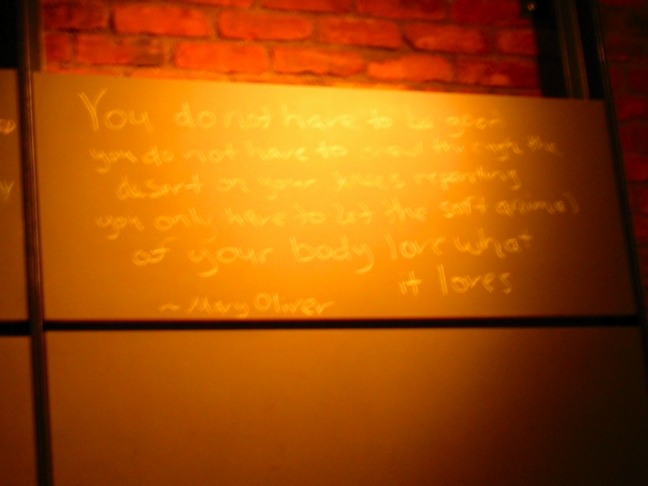 You do not have to be good
you do not have to crawl through the
desert on your knees repenting
you only have to let the soft animal
of your body love what
it loves
~ Mary Oliver